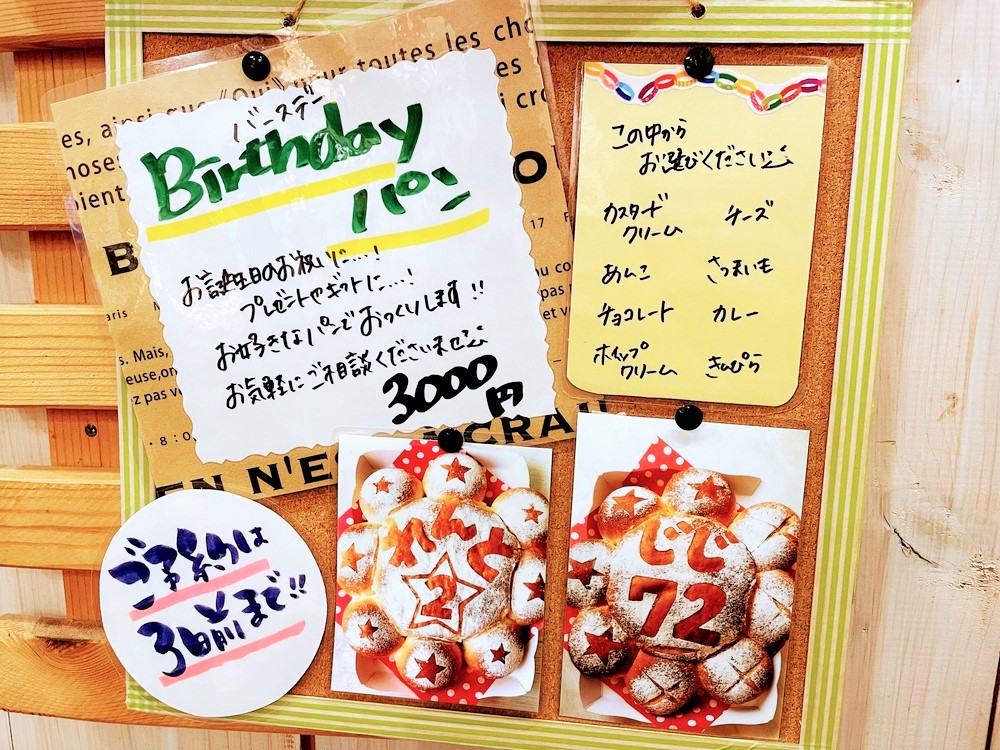 es, ainsi que "Oui" pour toutes les cho
バースデー
Birthday
パン
お誕生日のお祝いに…!
プレゼントやギフトに…!
お好きなパンでおつくりします!!
お気軽にご相談くださいませ
3000
円
この中から
お選びください
カスタード
クリーム
チーズ
あんこ
さつまいも
チョコレート
カレー
ホイップ
クリーム
きんぴら
ご予約は
3日前まで!!
れんと
2
じじ
72